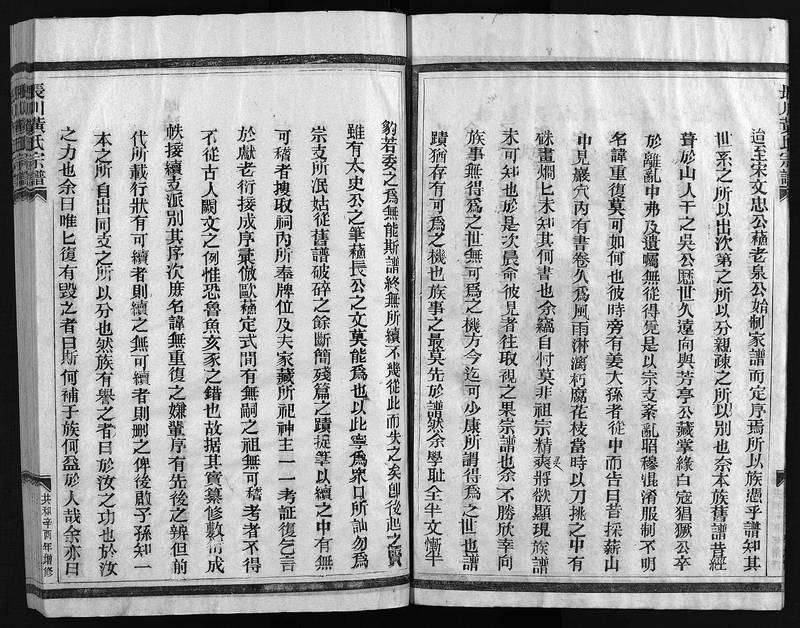 長川黃氏宗譜
迨至宋文忠公蘓老泉公始制家譜而定序焉所以族憑乎譜知其
世系之所以出次第之所以分親疎之所以別也奈本族舊譜昔經
葺於山人干之吳公歴世久遠向與芳亭公藏掌緣白寇猖獗公卒
於離亂中弗及遺囑無從得覓是以宗支紊亂昭穆混淆服制不明
名諱重復莫可如何也彼時旁有姜大孫者從中而告曰昔採薪山
中見巖穴內有書卷久為風雨淋漓朽腐花枝當時以刀挑之中有
硃畫爛匕未知其何書也余竊自忖莫非祖宗精爽將欲顯現族譜
未可知也於是次晨命彼見者往取視之果宗譜也余不勝欣幸向
族事無得為之世無可為之機方今迄可少康所謂得為之世也譜
蹟猶存有可為之機也族事之最莫先於譜然余學耻全半文慚半
豹若委之為無能斯譜終無所續不幾從此而失之矣卽後起之賢
雖有太史公之筆蘓長公之文莫能為也以此寧為衆口所訕勿為
宗支所泯姑從舊譜破碎之餘斷簡殘篇之蹟捉筆以續之中有
可稽者搜取祠內所奉牌位及夫家藏所祀神主一一考証復乞言
於獻老衍接成序彙倣歐蘓定式間有無嗣之祖無可稽考者不得
不從古人闕文之例惟恐魯魚亥豕之錯也故据其實纂修數 成
帙接續支派別其序次庶名諱無重復之嫌輩序有先後之辨但前
代所載行狀有可續者則續之無可續者則刪之俾後啟子孫知一
本之所自出同支之所以分也然族有譽之者曰於汝之功也於汝
之力也余曰唯匕復有毀之者曰斯何補于族何益於人哉余亦曰
長川黃氏宗譜
共和辛酉年增修